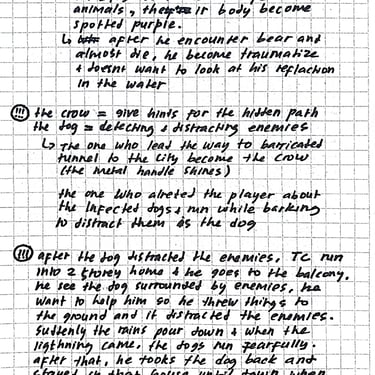 animals, their body become
spotted purple.
↳ after he encounter bear and
almost die, he become traumatize
& doesnt want to look at his reflaction
in the water
(!!!) the crow = give hints for the hidden path
the dog = detecting & distracting enemies
↳ The one who lead the way to barricated
tunnel to the City become the crow
(the metal handle shines)
the one who alreted the player about
the infected dogs & run while barking
to distract them is the dog
(!!!) after the dog distracted the enemies, TC run
into 2 storey home & he goes to the balcony.
he see the dog surrounded by enemies, he
want to help him so he threw things to
the ground and it distracted the enemies.
Suddenly the rains pour down & when the
ligthning came, the dogs run fearfully.
after that, he tooks the dog back and
stayed in that house until down when